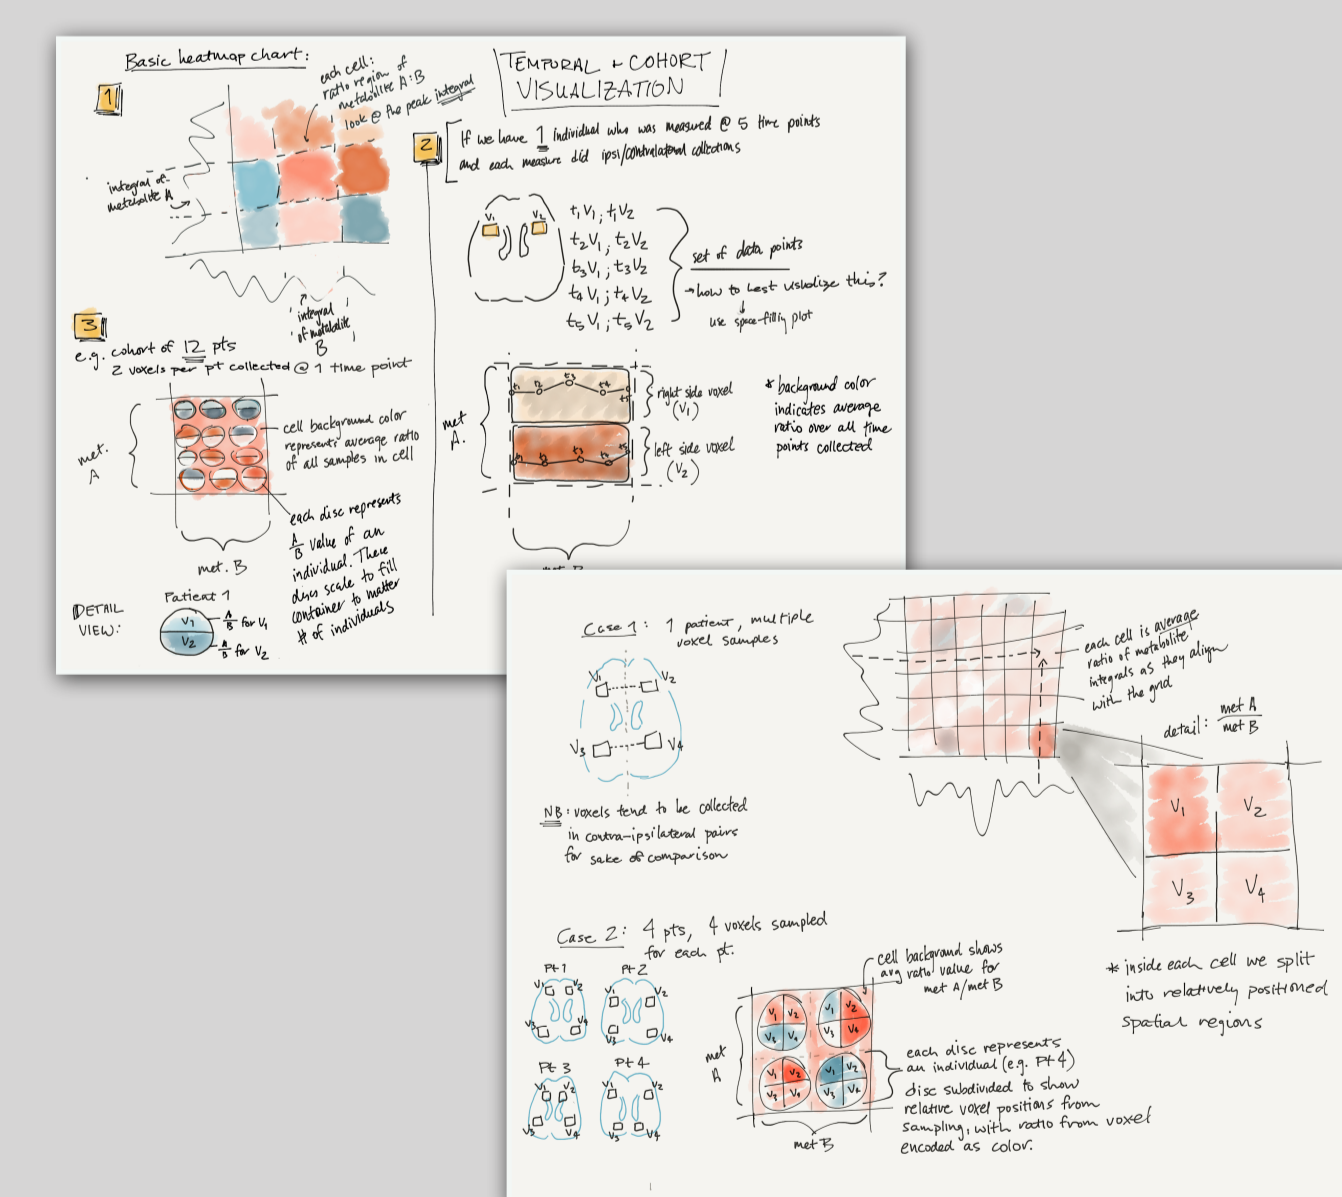 Basic heatmap chart:
1
each cell:
ratio region of
metabolite A:B
look @ the peak integral
integral of
metabolite A
integral
of metabolite
B
TEMPORAL + COHORT
VISUALIZATION
2
If we have 1 individual who was measured @ 5 time points
and each measure did ipsi/contralateral collections
V1 V2
t1V1 ; t1V2
t2V1 ; t2V2
t3V1 ; t3V2
t4V1 ; t4V2
t5V1 ; t5V2
set of data points
→ how to best visualize this?
use space-filling plot
met
A.
t1 t2 t3 t4 t5
right side voxel
(V1)
t1 t2 t3 t4 t5
left side voxel
(V2)
* background color
indicates average
ratio over all time
points collected
3
e.g. cohort of 12 pts
2 voxels per pt collected @ 1 time point
met.
A
cell background color
represents average ratio
of all samples in cell
met. B
each disc represents
A/B value of an
individual. These
discs scale to fill
container no matter
# of individuals
DETAIL
VIEW:
Patient 1
V1
V2
A/B for V1
A/B for V2
Case 1: 1 patient, multiple
voxel samples
V1 V2
V3 V4
NB: voxels tend to be collected
in contra-ipsilateral pairs
for sake of comparison
each cell is average
ratio of metabolite
integrals as they align
with the grid
detail: met A / met B
V1 V2
V3 V4
* inside each cell we split
into relatively positioned
spatial regions
Case 2: 4 pts, 4 voxels sampled
for each pt.
Pt 1 Pt 2
V1 V2 V1 V2
V3 V4 V3 V4
Pt 3 Pt 4
V1 V2 V1 V2
V3 V4 V3 V4
met
A
V1 V2 V1 V2
V3 V4 V3 V4
V1 V2 V1 V2
V3 V4 V3 V4
met B
cell background shows
avg ratio value for
met A/met B
each disc represents
an individual (e.g. Pt 4)
disc subdivided to show
relative voxel positions from
sampling, with ratio from voxel
encoded as color.